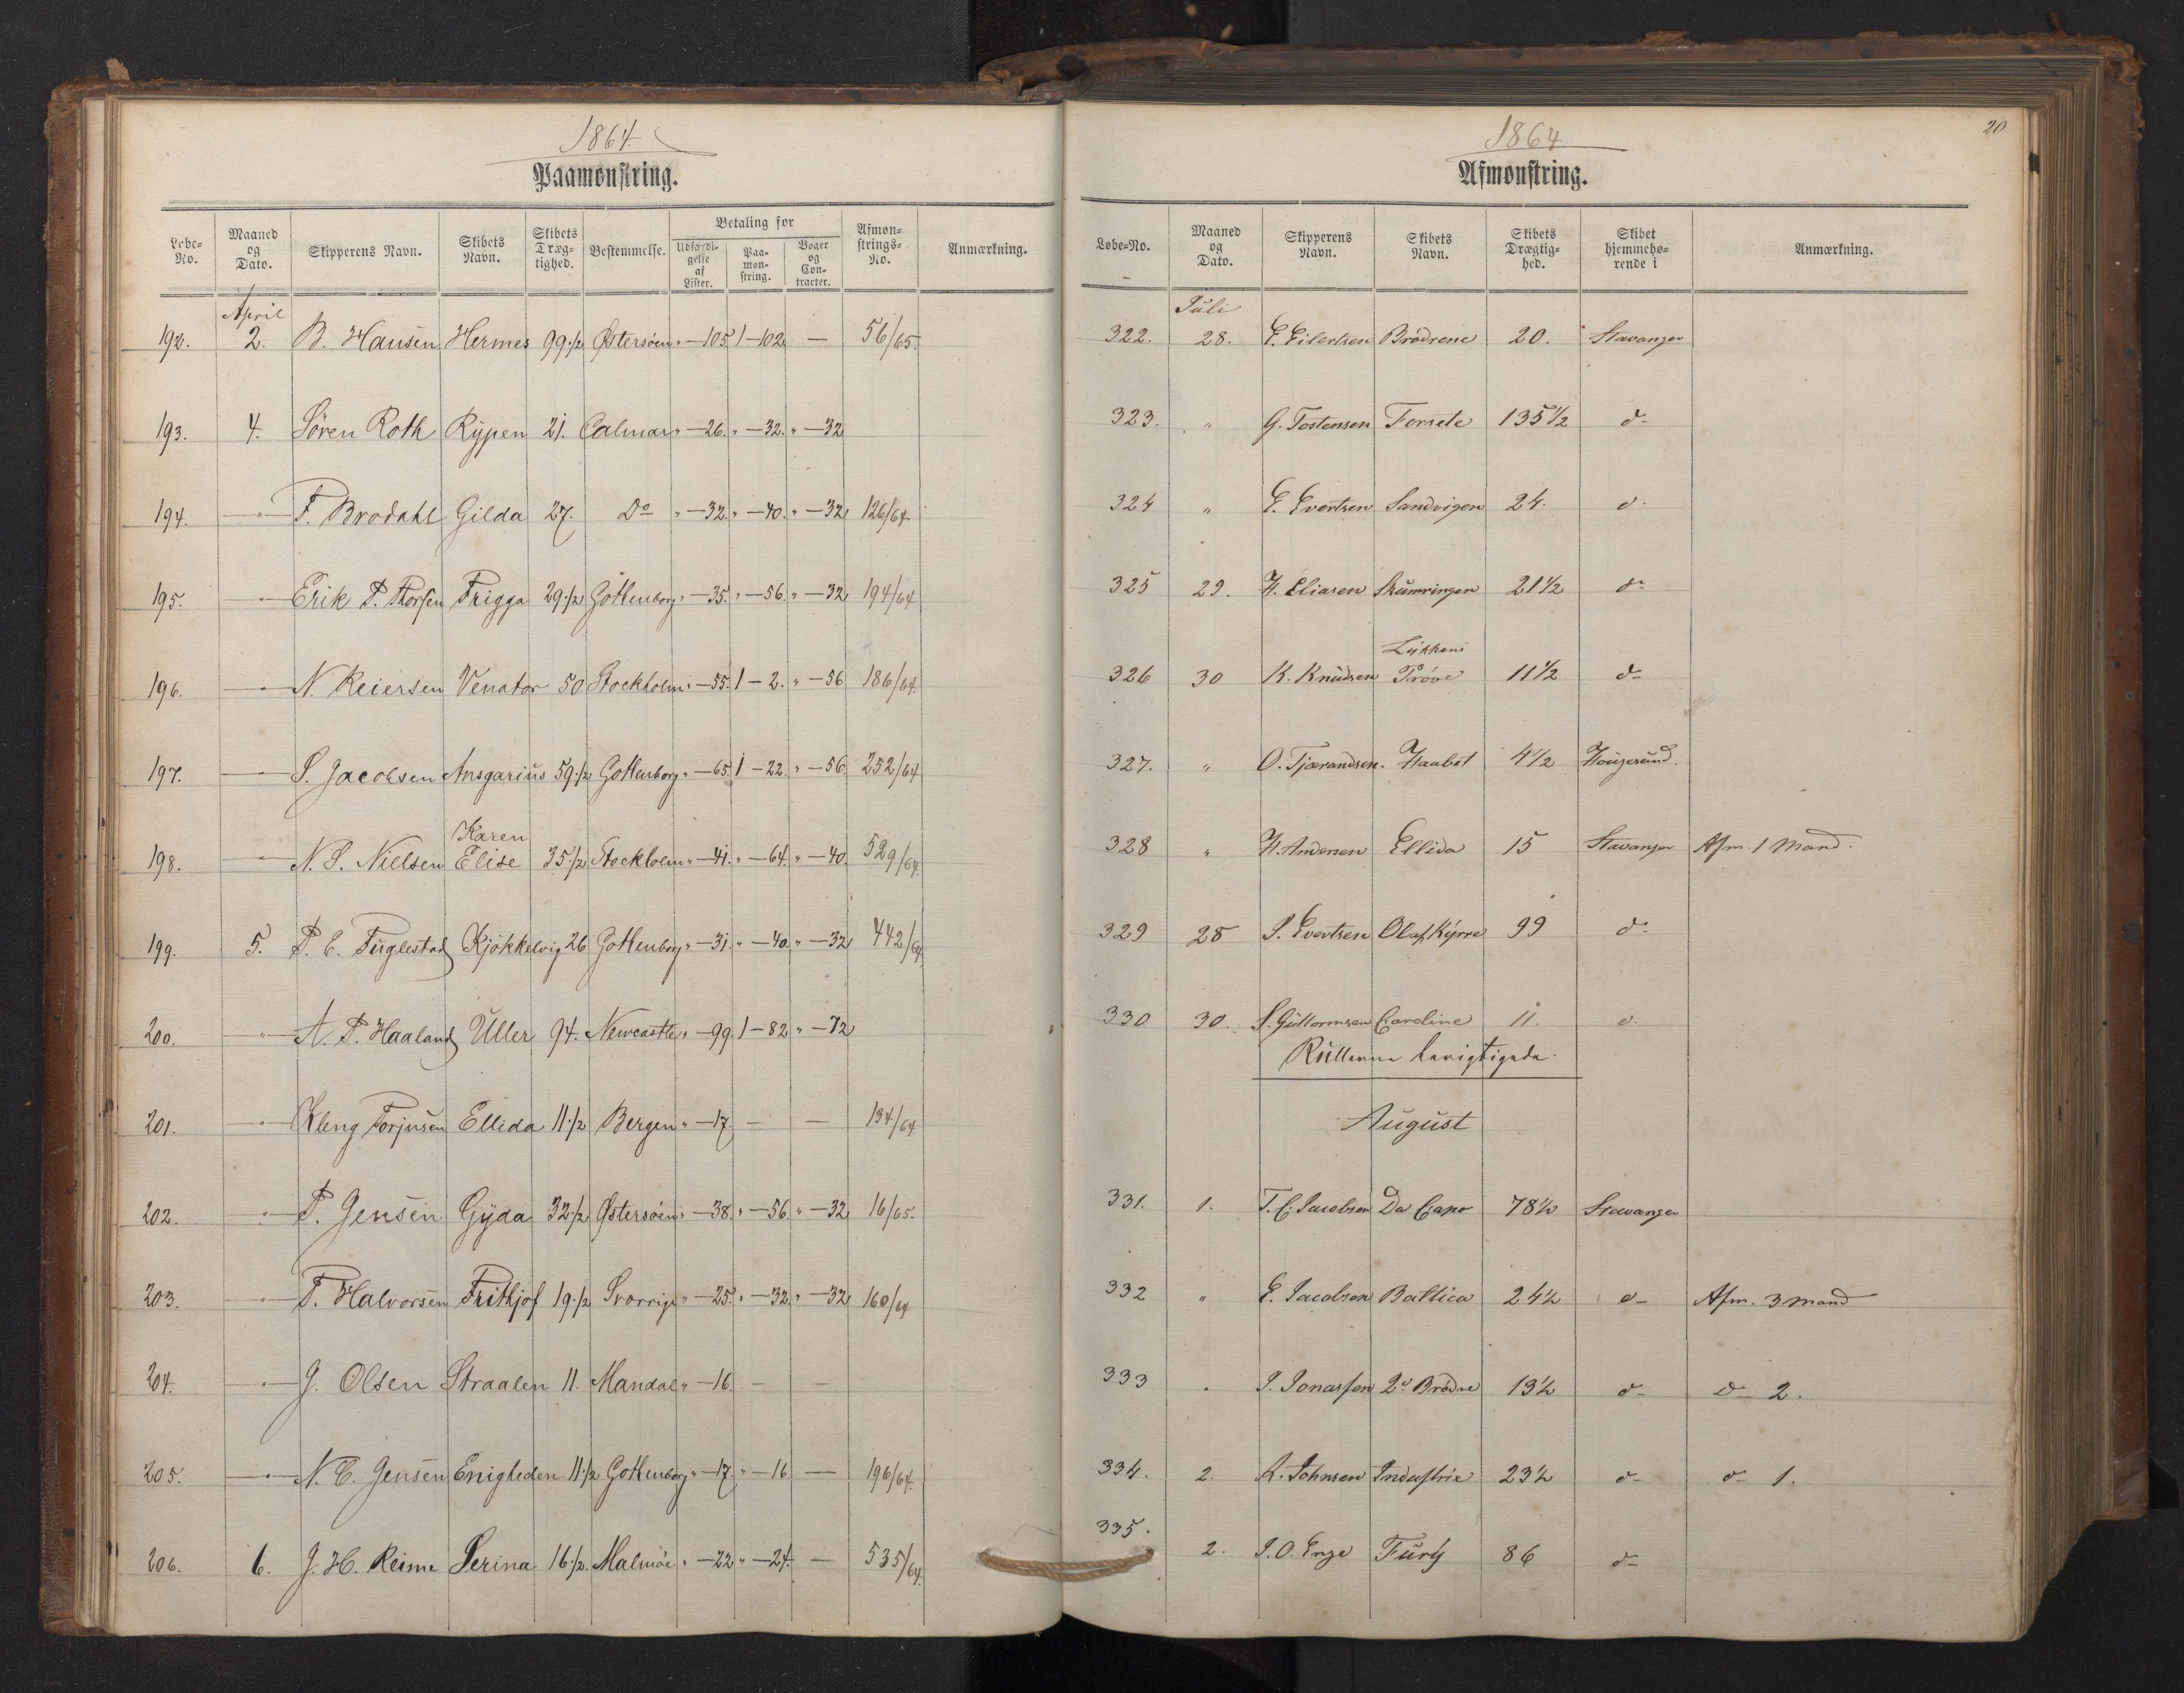 1864.
Paamønstring.
Løbe-No. Maaned og Dato. Skipperens Navn. Skibets Navn. Skibets Dræg-tighed. Bestemmelse. Betaling for Udfærdi-gelse af Lister. Paa-møn-string. Bøger og Con-tracter. Afmøn-strings-No. Anmærkning.
April
192. 2. B. Hansen Hermes 99 1/2 Østersøen " — 105 1 — 102 — 56/65.
193. 4. Søren Roth Rypen 21. Calmar " — 26. " — 32. " — 32
194. — " — F. Brodahl Gilda 27. Do " — 32. " — 40. " — 32 126/64
195. — " — Erik P. Thorsen Frigga 29 1/2 Gothenborg " — 35. " — 56. " — 32 194/64
196. — " — N. Reiersen Venator 50. Stockholm " — 55. 1 — 2. " — 56 186/64.
197. — " — S. Jacobsen Ansgarius 59 1/2 Gothenborg " — 65. 1 — 22. " — 56. 252/64
Karen
198. — " — N. S. Nielsen Elise 35 1/2 Stockholm " — 41. " — 64. " — 40. 529/64.
199. 5. P. E. Fuglestad Kjøkkelvig 26 Gothenborg " — 31. " — 40. " — 32 442/64
200. — " — A. P. Haaland Uller 94. Newcastle " — 99. 1 — 82 " — 72
201. — " — Kleng Torjusen Ellida 11 1/2 Bergen " — 17. — — 134/64
202. — " — P. Jensen Gyda 32 1/2 Østersøen " — 38. " — 56. " — 32 16/65.
203. — " — T. Halvorsen Frithjof 19 1/2 Sverrige " — 25. " — 32. " — 32 160/64
204. — " — J. Olsen Straalen 11. Mandal " — 16. — —
205. — " — N. C. Jensen Enigheden 11 1/2 Gothenborg " — 17. " — 16 — 196/64.
206. 6. J. H. Reime Serina 16 1/2. Malmöe " — 22 " — 24. — 535/64.
1864
20
Afmønstring.
Løbe-No. Maaned og Dato. Skipperens Navn. Skibets Navn. Skibets Drægtig-hed. Skibet hjemmehø-rende i Anmærkning.
Juli
322. 28. E. Eilertsen Brødrene 20. Stavanger
323. " G. Tostensen Forsete 135 1/2 do
324 " E. Evertsen Sandvigen 24. do
325 29. H. Eliasen Skumringen 21 1/2 do
Lykkens
326 30 K. Knudsen Prøve 11 1/2 do
327. " O. Tjærandsen. Haabet 4 1/2 Hougesund.
328 " H. Andersen Ellida 15 Stavanger Afm. 1 Mand.
329 28 S. Evertsen Olaf Kyrre 99 do
330 30. S. Guttormsen Caroline 11. do
Rullerne
August
331. 1. T. C. Jacobsen Da Capo 78 1/2 Stavanger
332 " E. Jacobsen Baltica 24 1/2 do Afm. 3 Mand
333 " I. Jonassen 2de Brødre 13 1/2 do do 2.
334. 2. A. Johnsen Industrie 23 1/2 do do 1.
335. 2. I. O. Enge Fury 86 do